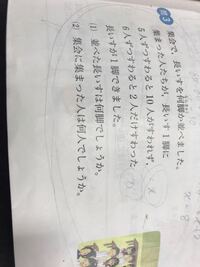 問3
集会で、長いすを何脚か並べました。
集まった人たちが、長いす1脚に
5人ずつすわると10人がすわれず、
6人ずつすわると2人だけすわった
長いすが1脚できました。
(1) 並べた長いすは何脚でしょうか。
(2) 集会に集まった人は何人でしょうか。